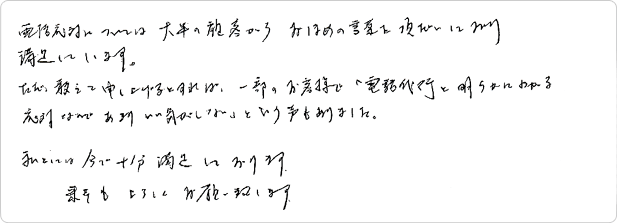 電話応対については大半の顧客からおほめの言葉を頂だいしており
満足しています。
ただ、敢えて申し上げるとすれば、一部のお客様で「電話代行と明らかにわかる
応対なのであまりいい気がしない」という声もありました。
私としては今で十分満足しております。
今後もよろしくお願い致します。